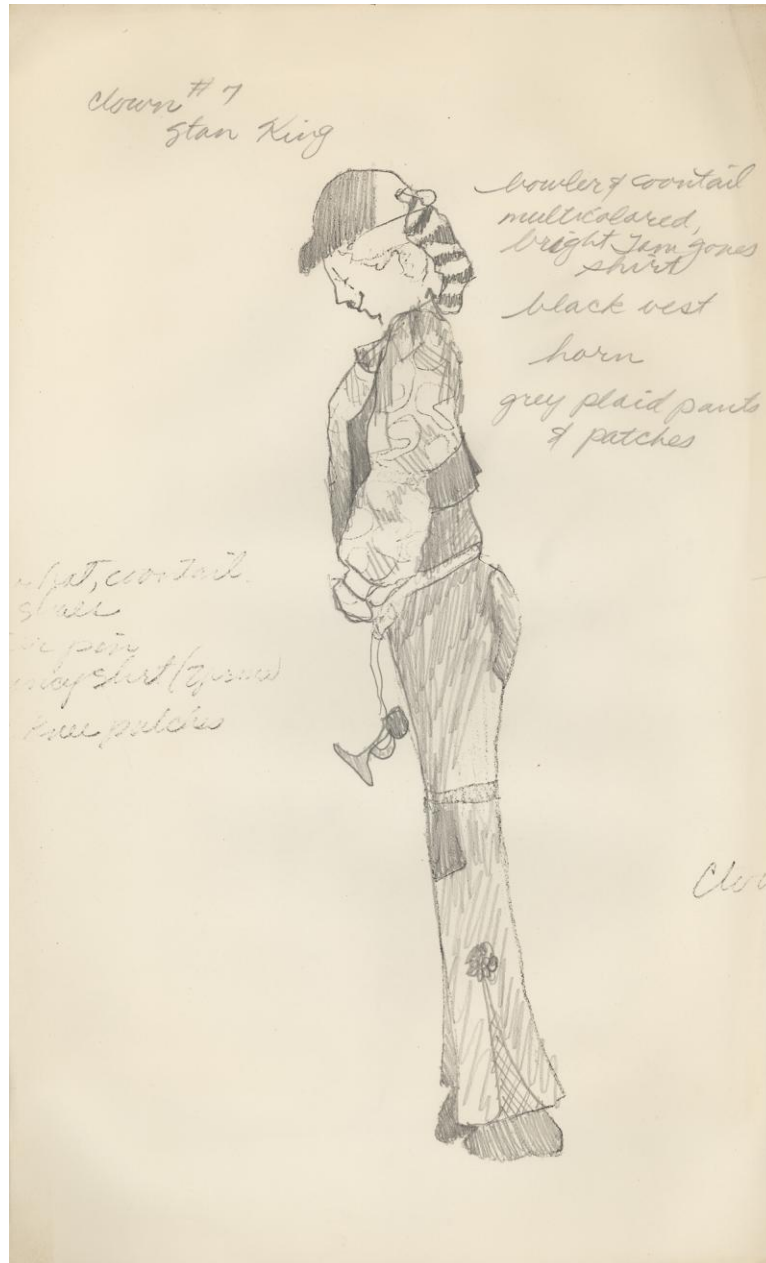 clown #7
Stan King
bowler & coontail
multicolared,
bright Tom Jones
shirt
black vest
horn
grey plaid pants
& patches
hat, coontail
pin
shirt
knee patches
Clow